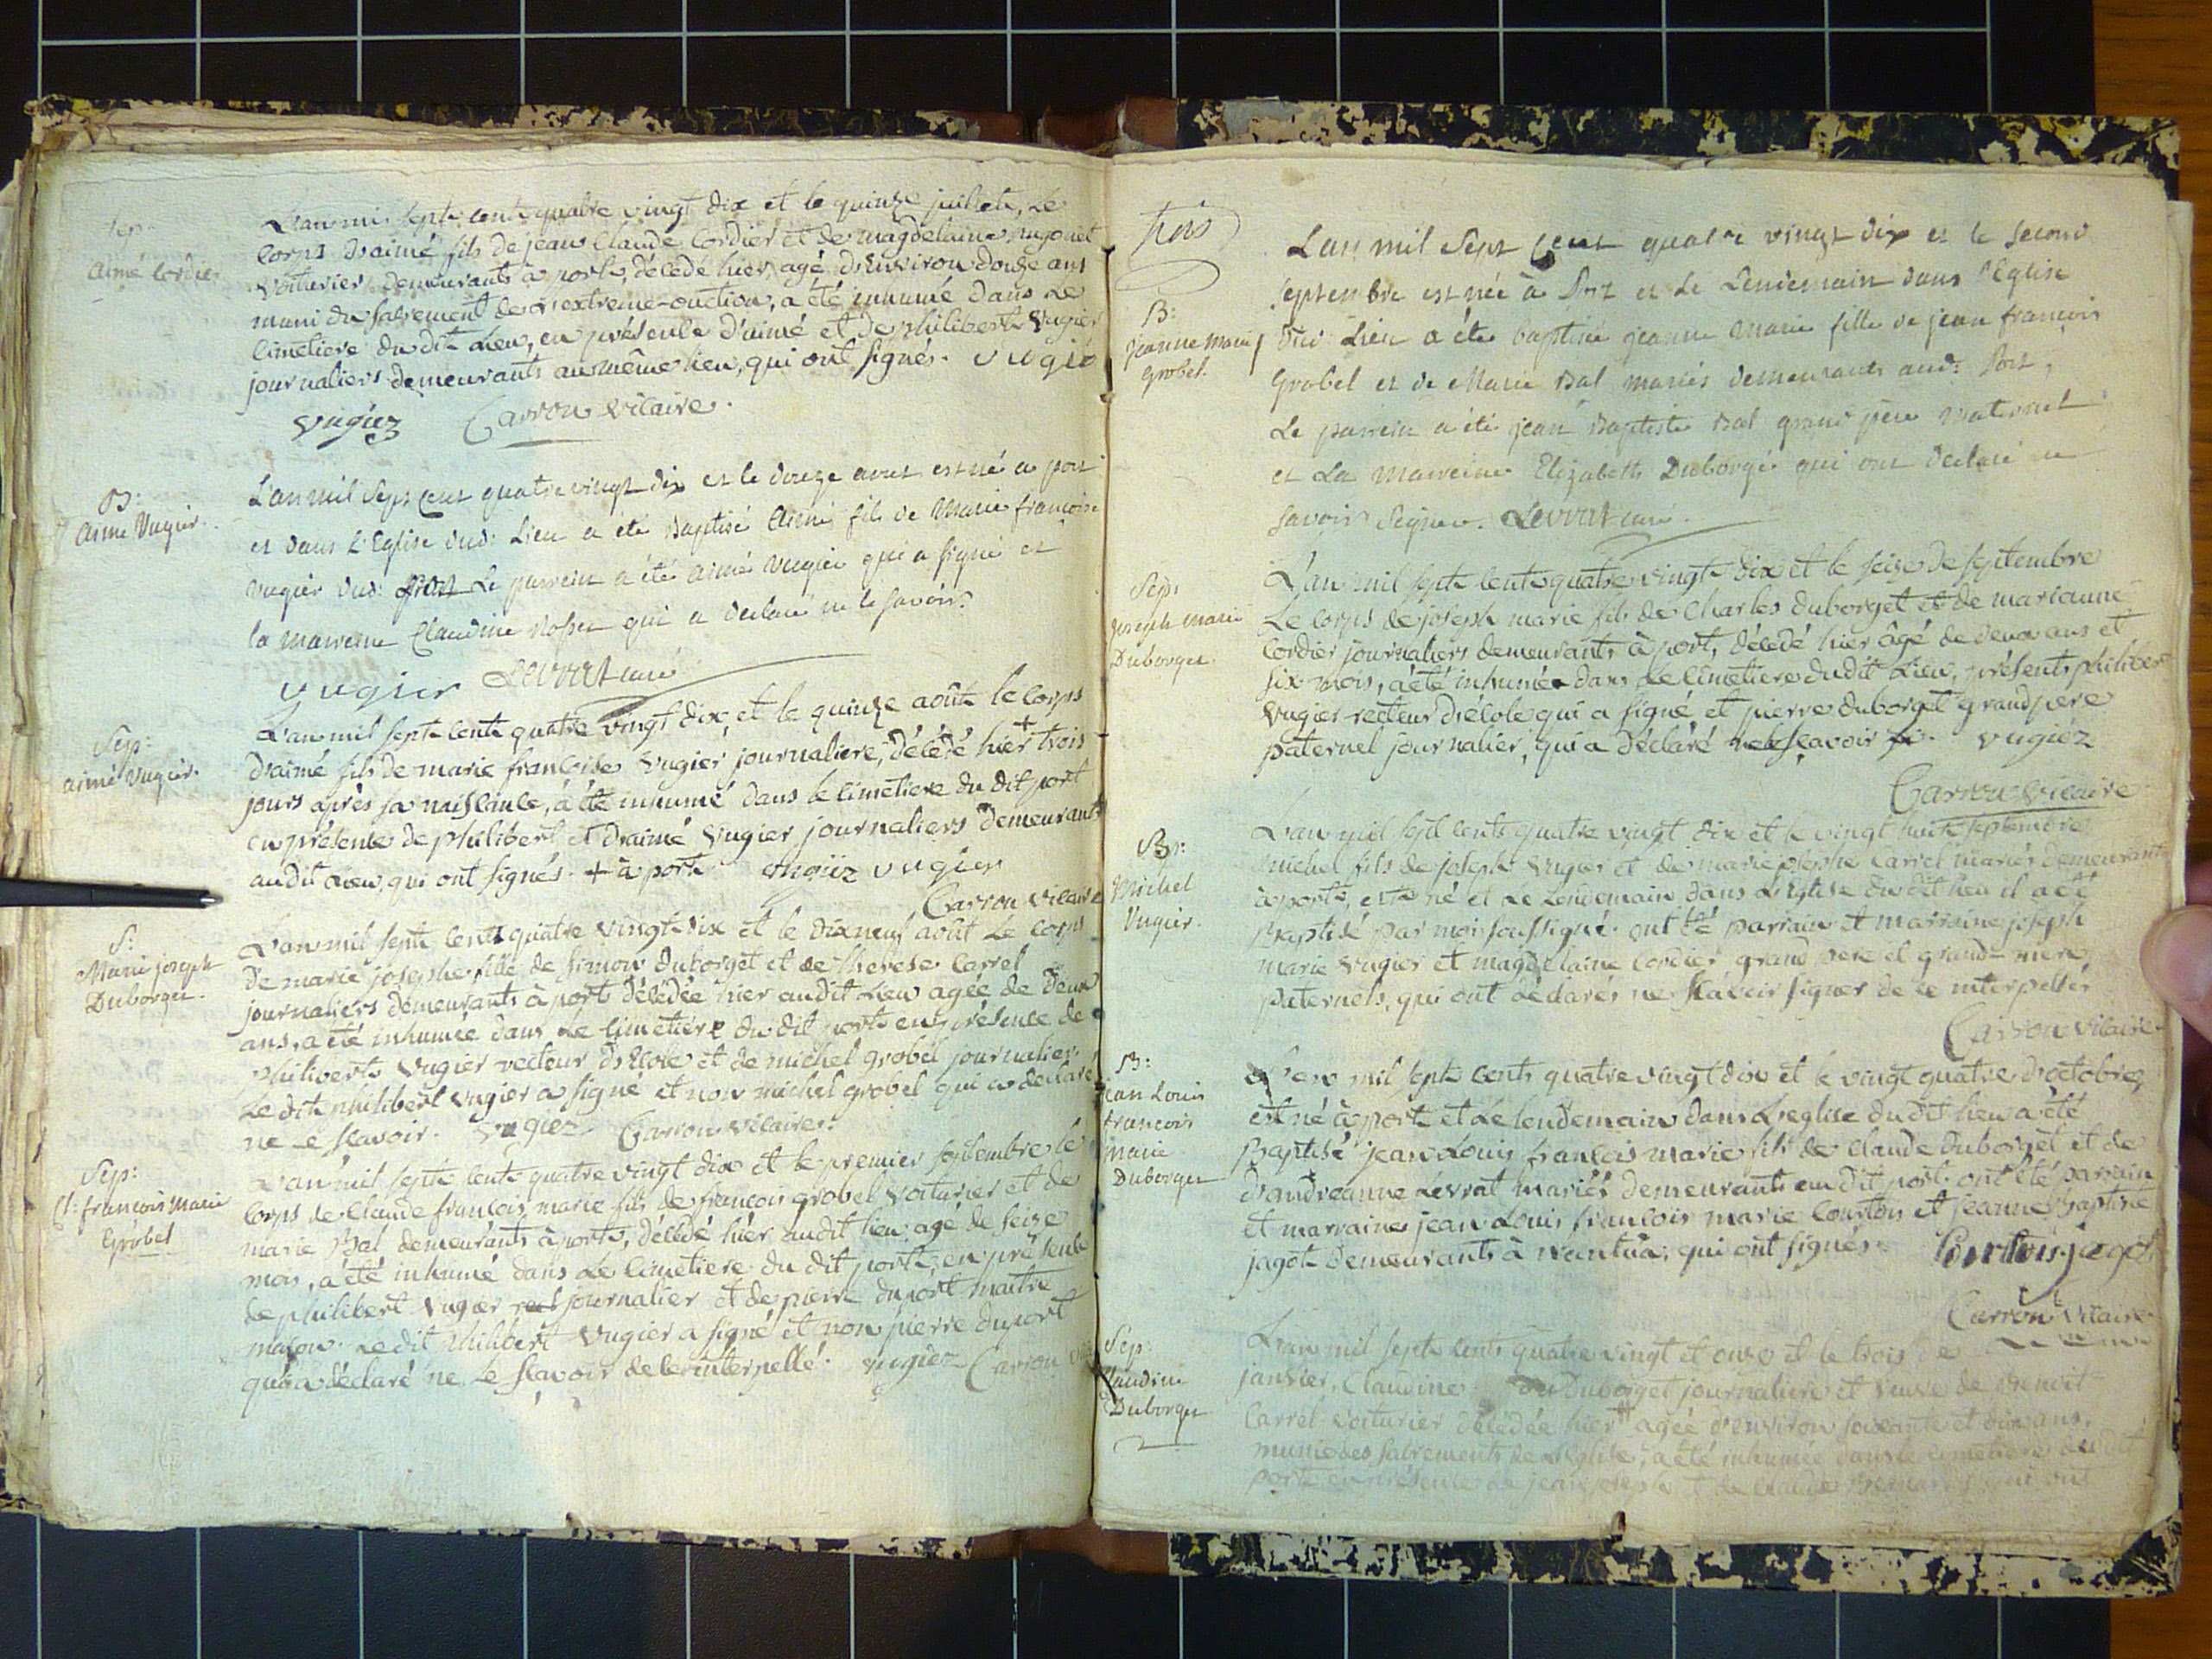 Sep.
aimé Cordier
L'an mil sept cent quatre vingt dix et le quinze juillet, Le
corps d'aimé fils de jean Claude Cordier et de magdelaine
voiturier demeurants à port, décédé hier, agé d'environ douze ans
muni du sacrement de l'extreme-onction, a été inhumé dans le
cimetiere du dit Lieu, en présence d'aimé et de philibert Vugier
journaliers demeurants au même lieu, qui ont signés. Vugié
Vugiez Carron vicaire.
B:
aimé Vugier.
L'an mil sept cent quatre vingt dix et le douze aout est né a port
et dans L'Eglise dud: Lieu a été Baptisé Aimé fils de Marie françoise
Vugier dud: port Le parrein a été aimé Vugier qui a signé et
la marreine Claudine qui a déclaré ne le savoir.
Vugier Levrat curé
Sep:
aimé Vugier.
L'an mil sept cent quatre vingt dix, et le quinze août le corps
d'aimé fils de marie françoise Vugier journaliere, décédé hier + trois
jours après sa naissance, a été inhumé dans le cimetiere du dit port
en présence de philibert et d'aimé Vugier journaliers demeurants
audit Lieu, qui ont signés. + à port vugier
Carron vicaire
S:
Marie joseph
Duborget.
L'an mil sept cent quatre vingt dix et le dix neuf août Le corps
de marie josephe fille de simon duborget et de therese Carrel
journaliers demeurants à port décédée hier audit Lieu agée de deux
ans, a été inhumée dans le cimetiere du dit port en présence de
philibert Vugier recteur d'école et de michel grobel journalier.
Le dit philibert Vugier a signé et non michel grobel qui a déclaré
ne le sçavoir. Vugiez Carron vicaire.
Sep:
Cl: françois Marie
Grobel
L'an mil sept cent quatre vingt dix et le premier septembre le
corps de Claude françois marie fils de françois grobel voiturier et de
marie Bal demeurants à port, décédé hier audit lieu agé de seize
mois, a été inhumé dans le cimetiere du dit port, en présence
de philibert Vugier rect journalier et de pierre duport maitre
maçon. Ledit philibert Vugier a signé et non pierre duport
qui a déclaré ne le sçavoir de ce interpellé. vugiez Carron
trois
B:
Jeanne Marie
Grobel.
L'an mil sept cent quatre vingt dix et le second
septembre est née à Port et le Lendemain dans l'Eglise
dud: Lieu a été baptisée jeanne Marie fille de jean françois
Grobel et de Marie Bal mariés demeurants aud: Port,
Le parrein a été jean Baptiste Bal grand père maternel
et La Marreine Elizabeth Duborget qui ont déclaré ne
savoir Signer. Levrat curé.
Sep:
Joseph Marie
Duborget.
L'an mil sept cent quatre vingt dix et le seize de septembre
Le corps de joseph marie fils de Charles duborget et de marianne
Cordier journaliers demeurants à port, décédé hier âgé de deux ans et
six mois, a été inhumé dans le cimetiere du dit Lieu, présents philibert
Vugier recteur d'école qui a signé et pierre duborget grand père
paternel journalier, qui a déclaré ne le sçavoir. vugiéz
Carron vicaire
B:
Michel
Vugier.
L'an mil sept cents quatre vingt dix et le vingt huit septembre
michel fils de joseph Vugier et de marie josephe Carrel mariés demeurants
à port, est né et Le Lendemain dans L'Eglise du dit lieu il a été
Baptisé par moi soussigné. ont été parrain et marraine joseph
marie Vugier et magdelaine Cordier grand pere et grand-mere
paternels, qui ont déclarés ne sçavoir signer de ce interpellés
Carron vicaire.
B:
Jean Louis
françois
Marie
Duborget
L'an mil sept cents quatre vingt dix et le vingt quatre d'octobre,
est né à port et Le lendemain dans L'eglise du dit lieu a été
Baptisé jean Louis françois marie fils de Claude Duborget et de
d'andréanne Levrat mariés demeurants au dit port. ont été parrain
et marraine jean Louis françois marie Courtois et jeanne Baptiste
jagot demeurants à Nantua, qui ont signés. Courtois jagot
Carron vicaire.
Sep:
Claudine
Duborget
L'an mil sept cents quatre vingt et onze et le trois de
janvier, Claudine Duborget journaliere et veuve de Benoit
Carrel voiturier décédée hier agée d'environ soixante et dix ans,
munie des sacrements de L'Eglise, a été inhumée dans le cimetiere du dit
port en présence de jean joseph et de claude qui ont